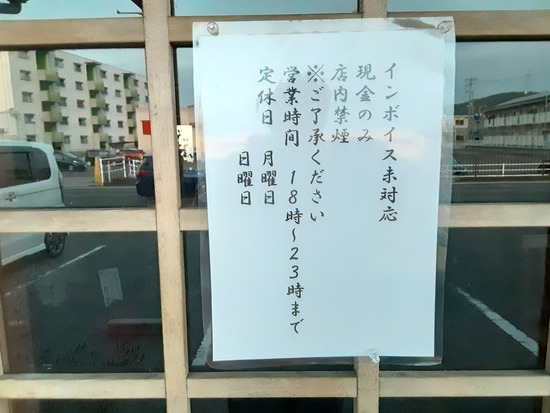 インボイス未対応
現金のみ
店内禁煙
※ご了承ください
営業時間 18時~23時まで
定休日 月曜日
日曜日